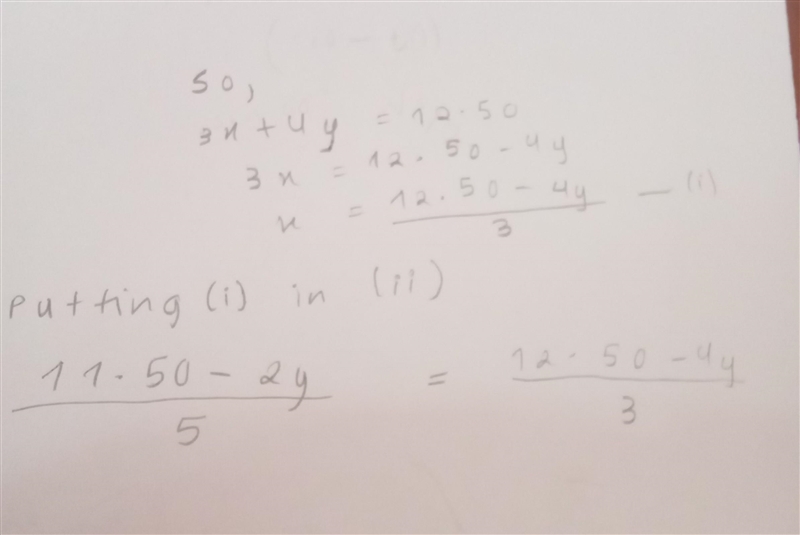 So,
3x + 4y = 12.50
3x = 12.50 - 4y
x = 12.50 - 4y / 3 — (i)
Putting (i) in (ii)
11.50 - 2y / 5 = 12.50 - 4y / 3